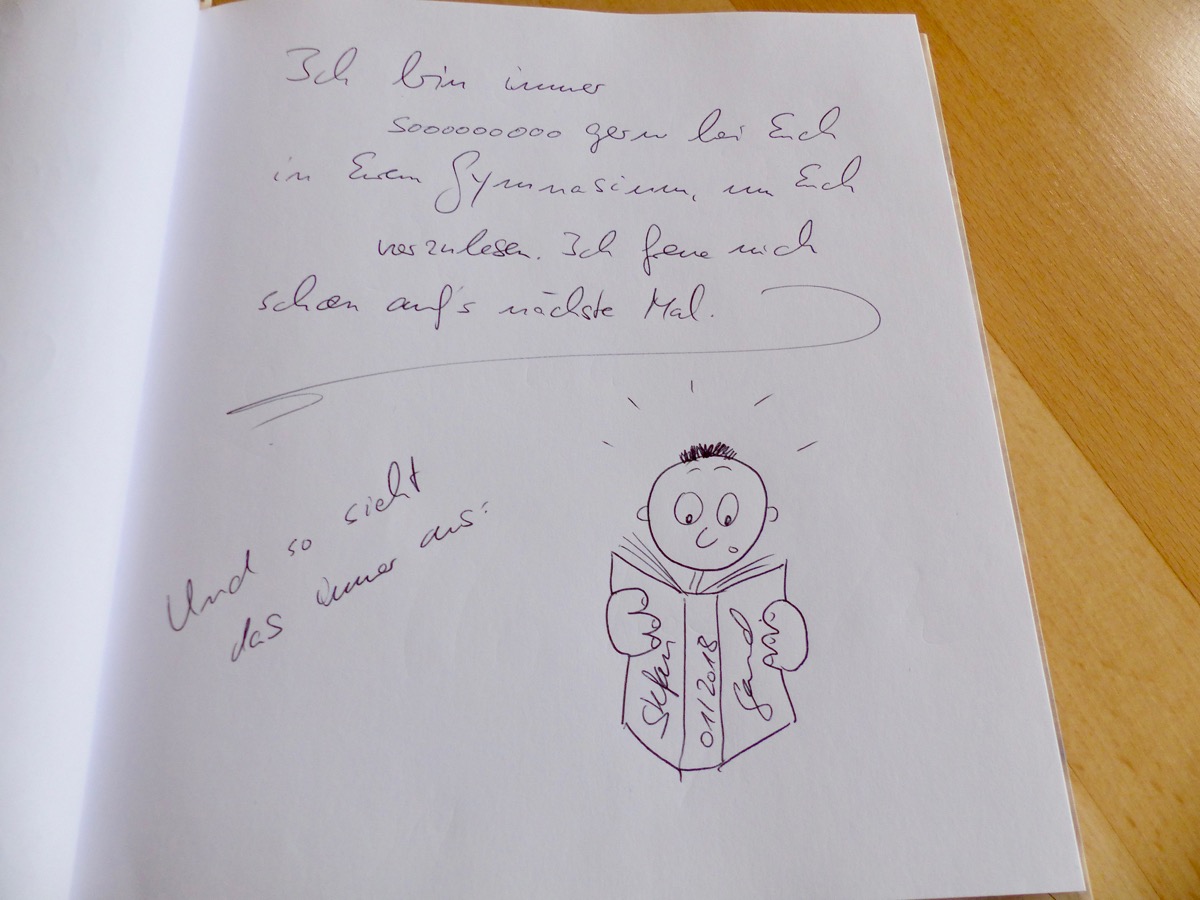 Ich bin immer
sooooooooo gern bei Euch
in Eurem Gymnasium, um Euch
vorzulesen. Ich freue mich
schon auf's nächste Mal.
Und so sieht
das immer aus:
Stefan
01/2018